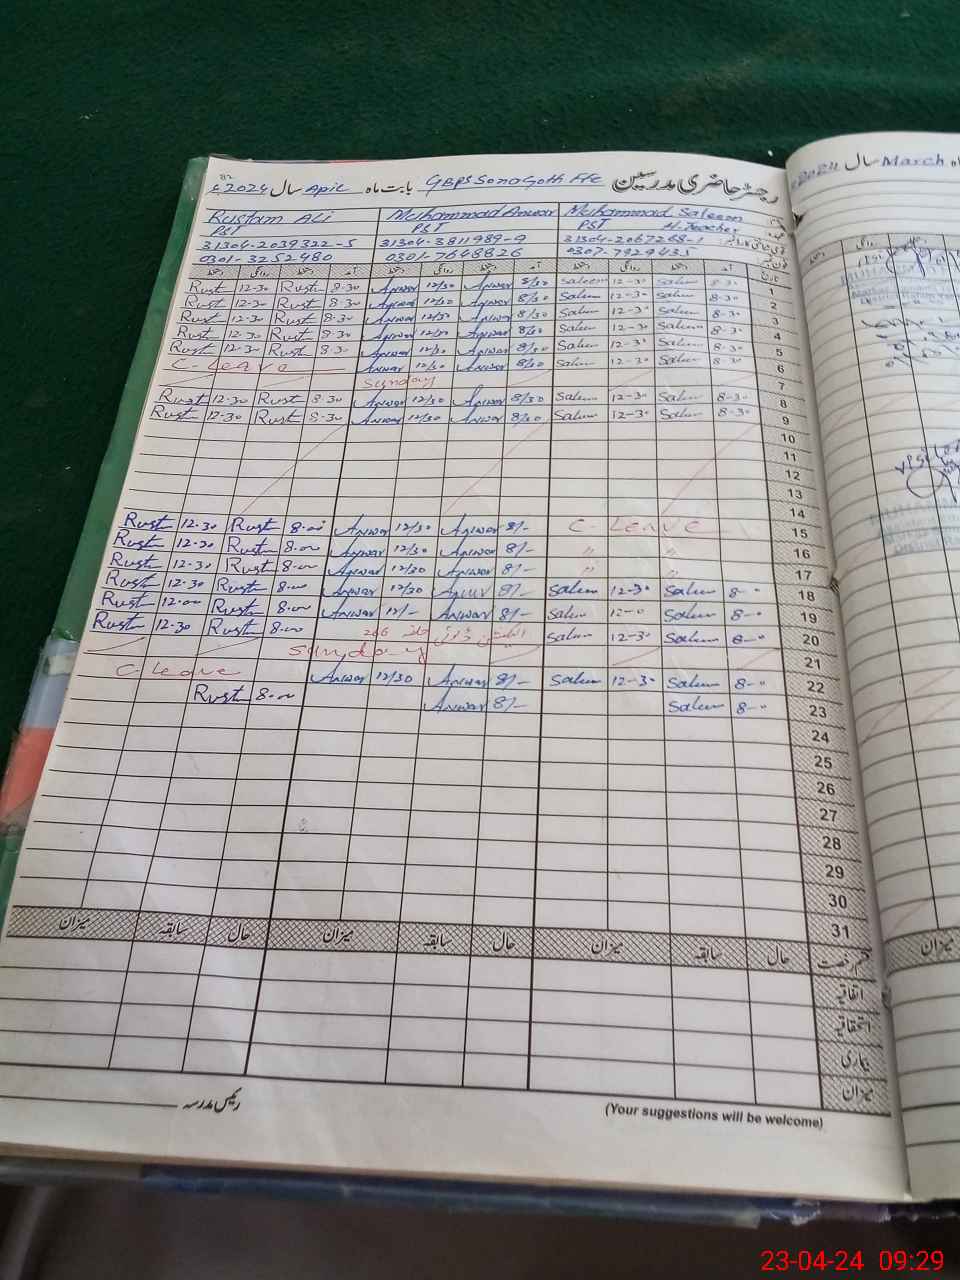 رجسٹر حاضری مدرسین GBPS Sona Goth FFC بابت ماہ April سال 2024ء
Rustam Ali Muhammad Anwar Muhammad Saleem
PST PST PST H.Teacher
31304-2039322-5 31304-3811989-9 31304-2067268-1
0301-3252480 0301-7648826 0307-7929435
دستخط روانگی دستخط آمد دستخط روانگی دستخط آمد دستخط روانگی دستخط آمد تاریخ
Rust 12-30 Rust 8-30 Anwar 12/30 Anwar 8/30 Saleem 12-30 Salem 8-30 1
Rust 12-30 Rust 8-30 Anwar 12/30 Anwar 8/30 Salem 12-30 Salem 8-30 2
Rust 12-30 Rust 8-30 Anwar 12/30 Anwar 8/30 Salem 12-30 Salem 8-30 3
Rust 12-30 Rust 8-30 Anwar 12/30 Anwar 8/30 Salem 12-30 Salem 8-30 4
Rust 12-30 Rust 8-30 Anwar 12/30 Anwar 8/30 Salem 12-30 Salem 8-30 5
C-Leave Anwar 12/30 Anwar 8/30 Salem 12-30 Salem 8-30 6
Sunday 7
Rust 12-30 Rust 8-30 Anwar 12/30 Anwar 8/30 Salem 12-30 Salem 8-30 8
Rust 12-30 Rust 8-30 Anwar 12/30 Anwar 8/30 Salem 12-30 Salem 8-30 9
10
11
12
13
14
Rust 12-30 Rust 8-00 Anwar 12/30 Anwar 8/- C-Leave 15
Rust 12-30 Rust 8-00 Anwar 12/30 Anwar 8/- " " 16
Rust 12-30 Rust 8-00 Anwar 12/30 Anwar 8/- " " 17
Rust 12-30 Rust 8-00 Anwar 12/30 Anwar 8/- Salem 12-30 Salem 8-0 18
Rust 12-00 Rust 8-00 Anwar 12/- Anwar 8/- Salem 12-0 Salem 8-0 19
Rust 12-30 Rust 8-00 الیکشن ڈیوٹی حلقہ 266 Salem 12-30 Salem 8-0 20
Sunday 21
C-Leave Anwar 12/30 Anwar 8/- Salem 12-30 Salem 8-0 22
Rust 8-00 Anwar 8/- Salem 8-0 23
24
25
26
27
28
29
30
31
میزان سابقہ حال میزان سابقہ حال میزان سابقہ حال قسم رخصت
اتفاقیہ
استحقاقیہ
بیماری
میزان
رئیس مدرسہ
(Your suggestions will be welcome)
ماہ March سال 2024
میزان
23-04-24 09:29